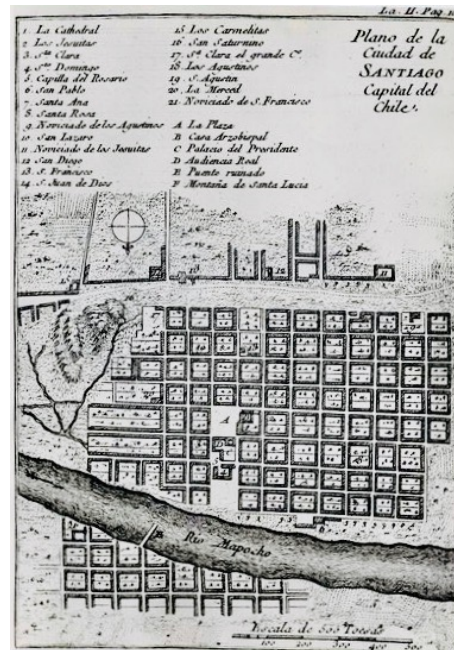 La. II. Pag.
Plano de la
Ciudad de
SANTIAGO
Capital del
Chile.
1. La Cathedral
2 Los Jesuitas
3. Sta Clara
4. Sto Domingo
5. Capilla del Rosario
6. San Pablo
7. Santa Ana
8. Santa Rosa
9. Noviciado de los Agustinos
10. San Lazaro
11. Noviciado de los Jesuitas
12 San Diego
13. S. Francisco
14. S. Juan de Dios
15 Los Carmelitas
16 San Saturnino
17 Sta Clara el grande Co.
18. Los Agustinos
19. S. Agustin
20. La Merced
21. Noviciado de S. Francisco
A La Plaza
B Casa Arzobispal
C Palacio del Presidente
D Audiencia Real
E Puente ruinado
F Montaña de Santa Lucia
12
11
A
E
Rio Mapocho
Escala de 500 Toesas
100 200 300 400 500